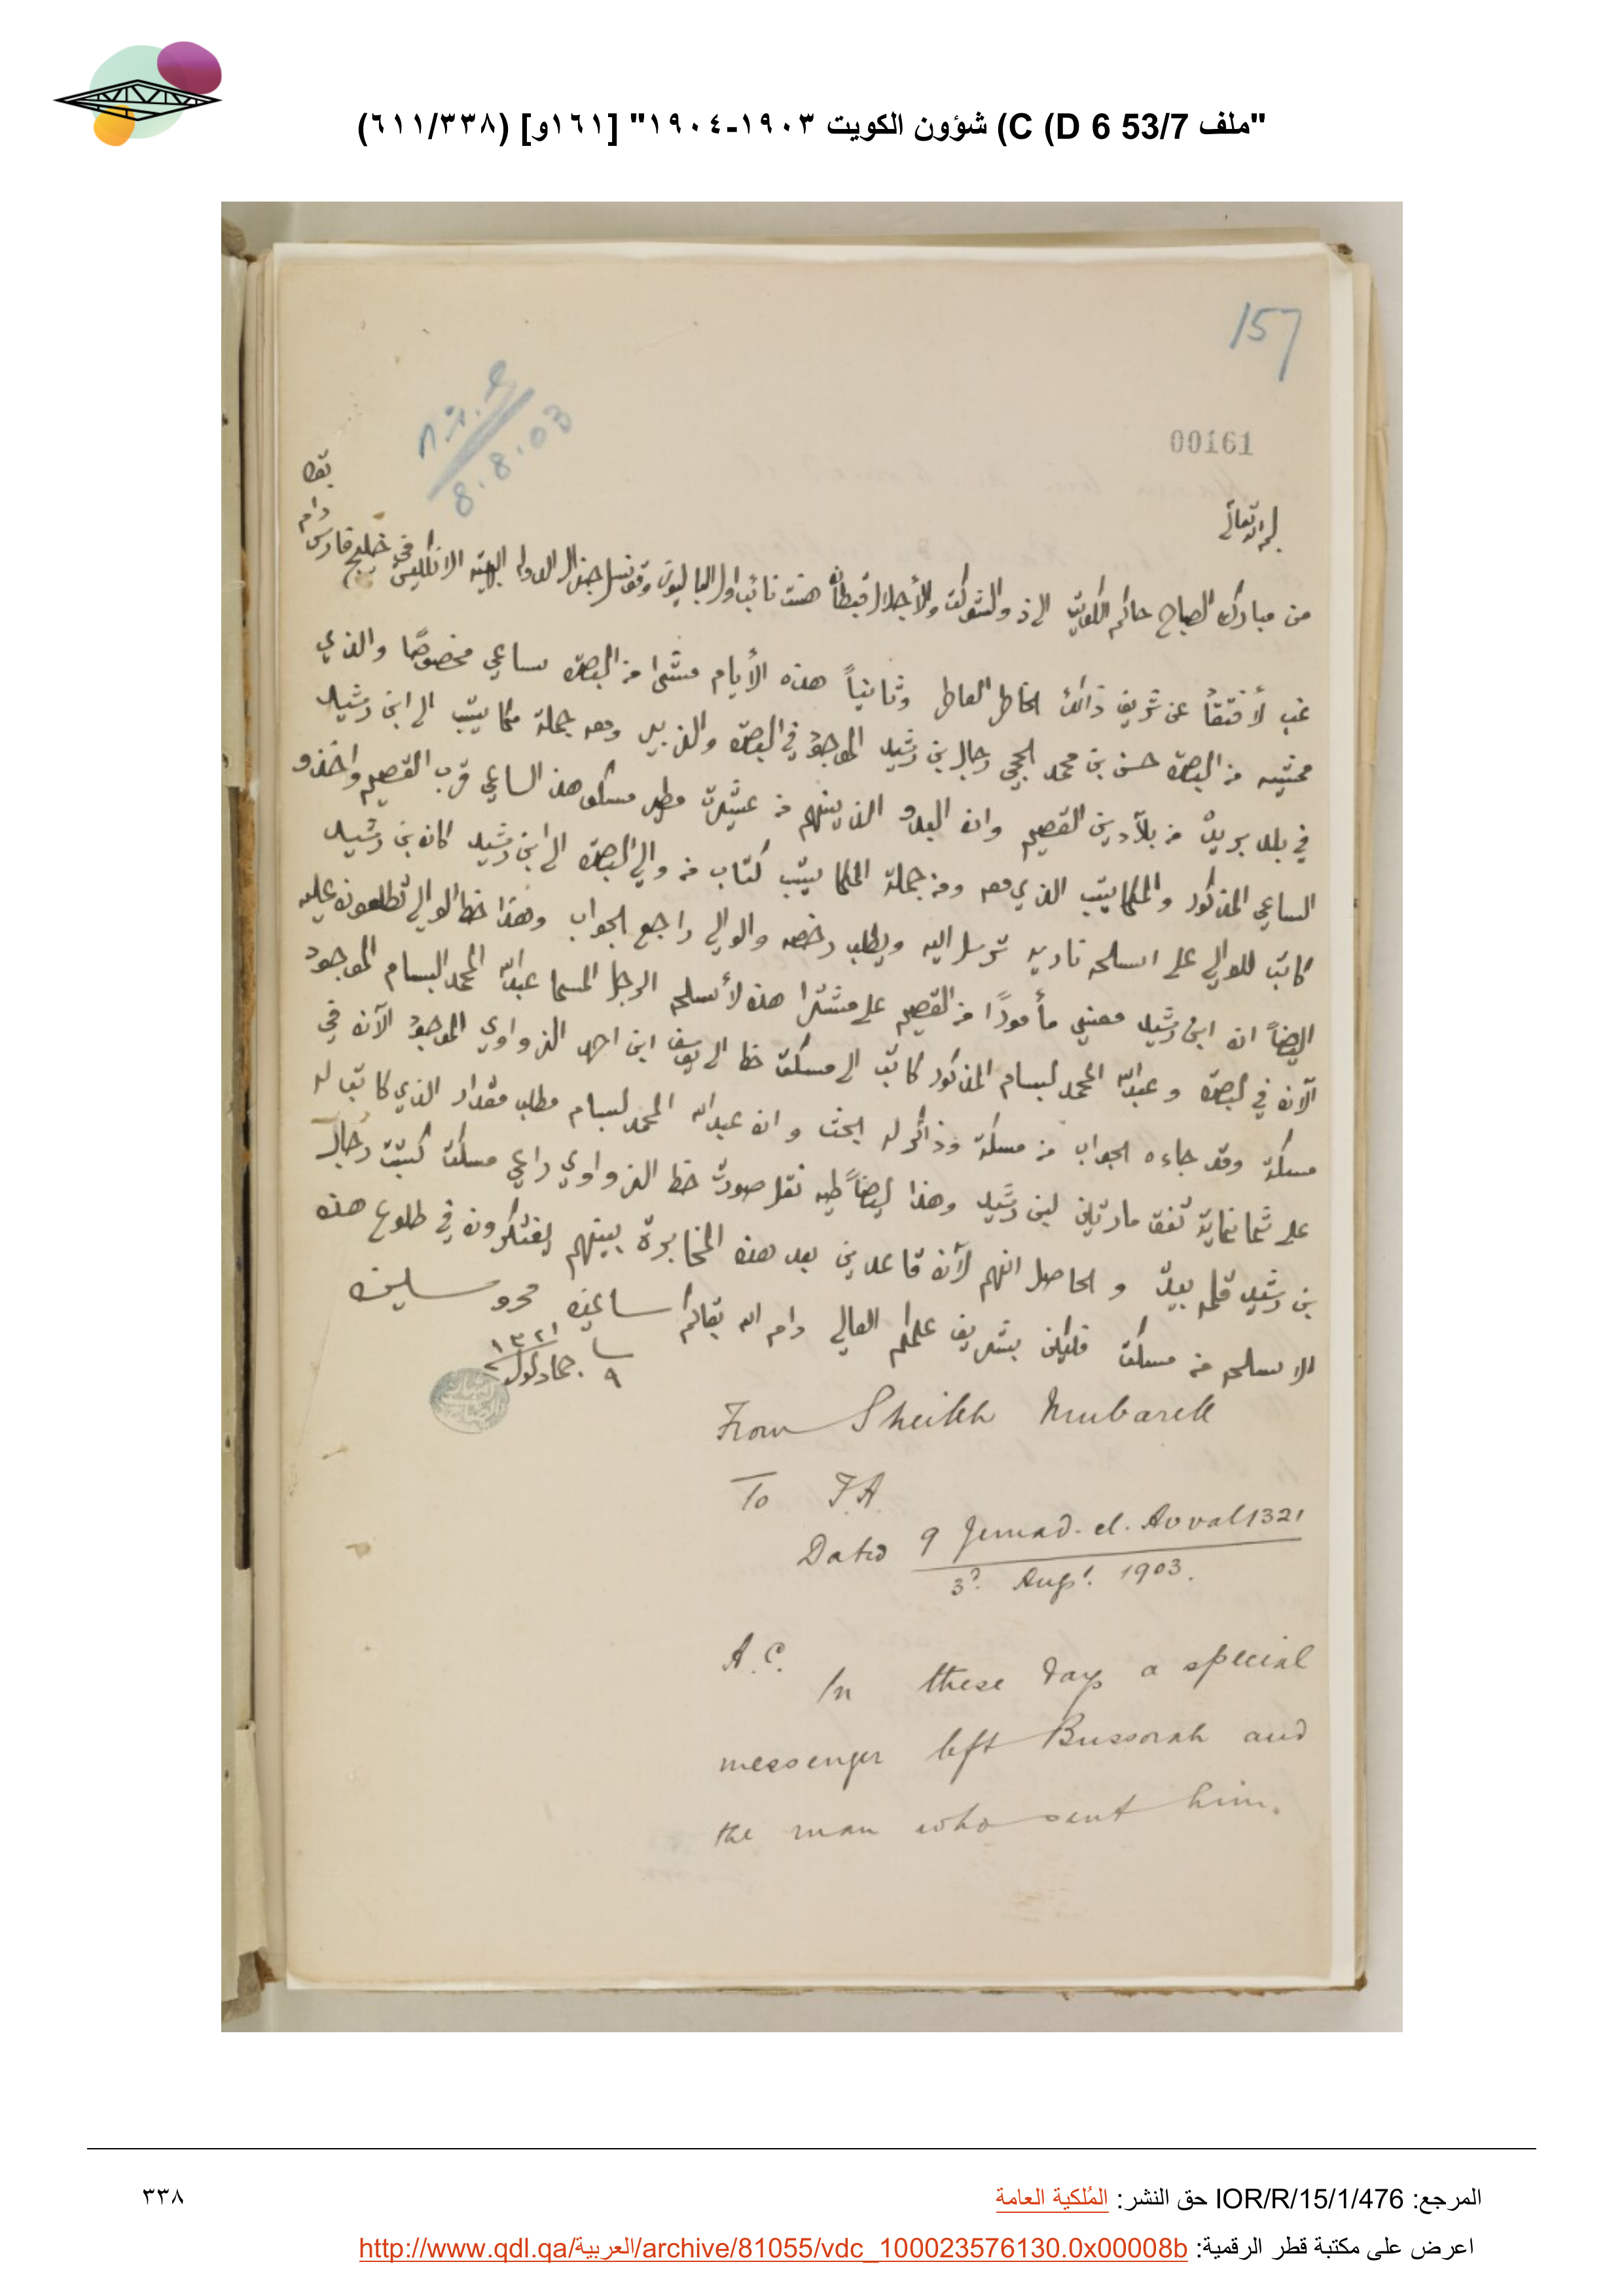 "ملف 53/7 D 6) C) شؤون الكويت ١٩٠٣-١٩٠٤" [١٦١و] (٦١١/٣٣٨)
157
8.8.03
00161
بقاه
دام
من مبارك الصباح حاكم الكويت الى ذو الشوكت والأجلال قبطان هنت نائب اول الباليوز وقونسل جنرال الدولة البهية الانكليس في خليج فارس
غب لأفتقاد عن شريف ذاتك الخاطر العاطر وثانياً هذه الأيام مشى من البصره ساعي مخصوصًا والذي
ممشيه من البصرة حسن بن محمد الحجي رجال بن رشيد الموجود في البصره والزبير ومعه جملة مكاتيب الى ابن رشيد
في بلد بريده من بلادين القصيم وان البدو الذينهم من عشيرت مطير مسكو هذا الساعي قرب القصيم واخذو
الساعي المذكور والمكاتيب الذي معه ومن جملة المكاتيب كتاب من والي البصره الى ابن رشيد كان بن رشيد
كاتب للوالي على اسلحه ناريه ترسل اليه ويطلب رخصه والوالي راجع الجواب وهذا خط الوالي تطلعون عليه
ايضاً ان ابن رشيد معني مأمورًا من القصيم على مشترا هذه لأسلحه الرجل المسما عبدالله المحمد البسام الموجود
الآن في البصره و عبدالله المحمد لبسام المذكور كاتب الى مسكت خط الى يوسف ابن احمد الزواوي الموجود الآن في
مسكت وقد جاءه الجواب من مسكت وذاكر له البحث وان عبدالله المحمد لبسام مطلب مقدار الذي كاتب له
على ثمانماية تفق مارتيلي لبن رشيد وهذا ايضاً طيه نقل صورت خط الزواوي راعي مسكت كتبت رجال
بن رشيد قلمه بيده و الحاصل انهم لآن قاعدين بعد هذه المخابرة بينهم يفتكرون في طلوع هذه
الاسلحه من مسكت فليكن بشريف علمكم العالي دام الله بقاكم ساعينه محروسينه
٩ جمادلول ١٣٢١
From Sheikh Mubarek
To F.A.
Dated 9 Jemad. el. Avval 1321
3d. Augt. 1903.
A.C.
In these days a special
messenger left Bussorah and
the man who sent him.
المرجع: IOR/R/15/1/476 حق النشر: المُلكية العامة
٣٣٨
اعرض على مكتبة قطر الرقمية: http://www.qdl.qa/العربية/archive/81055/vdc_100023576130.0x00008b